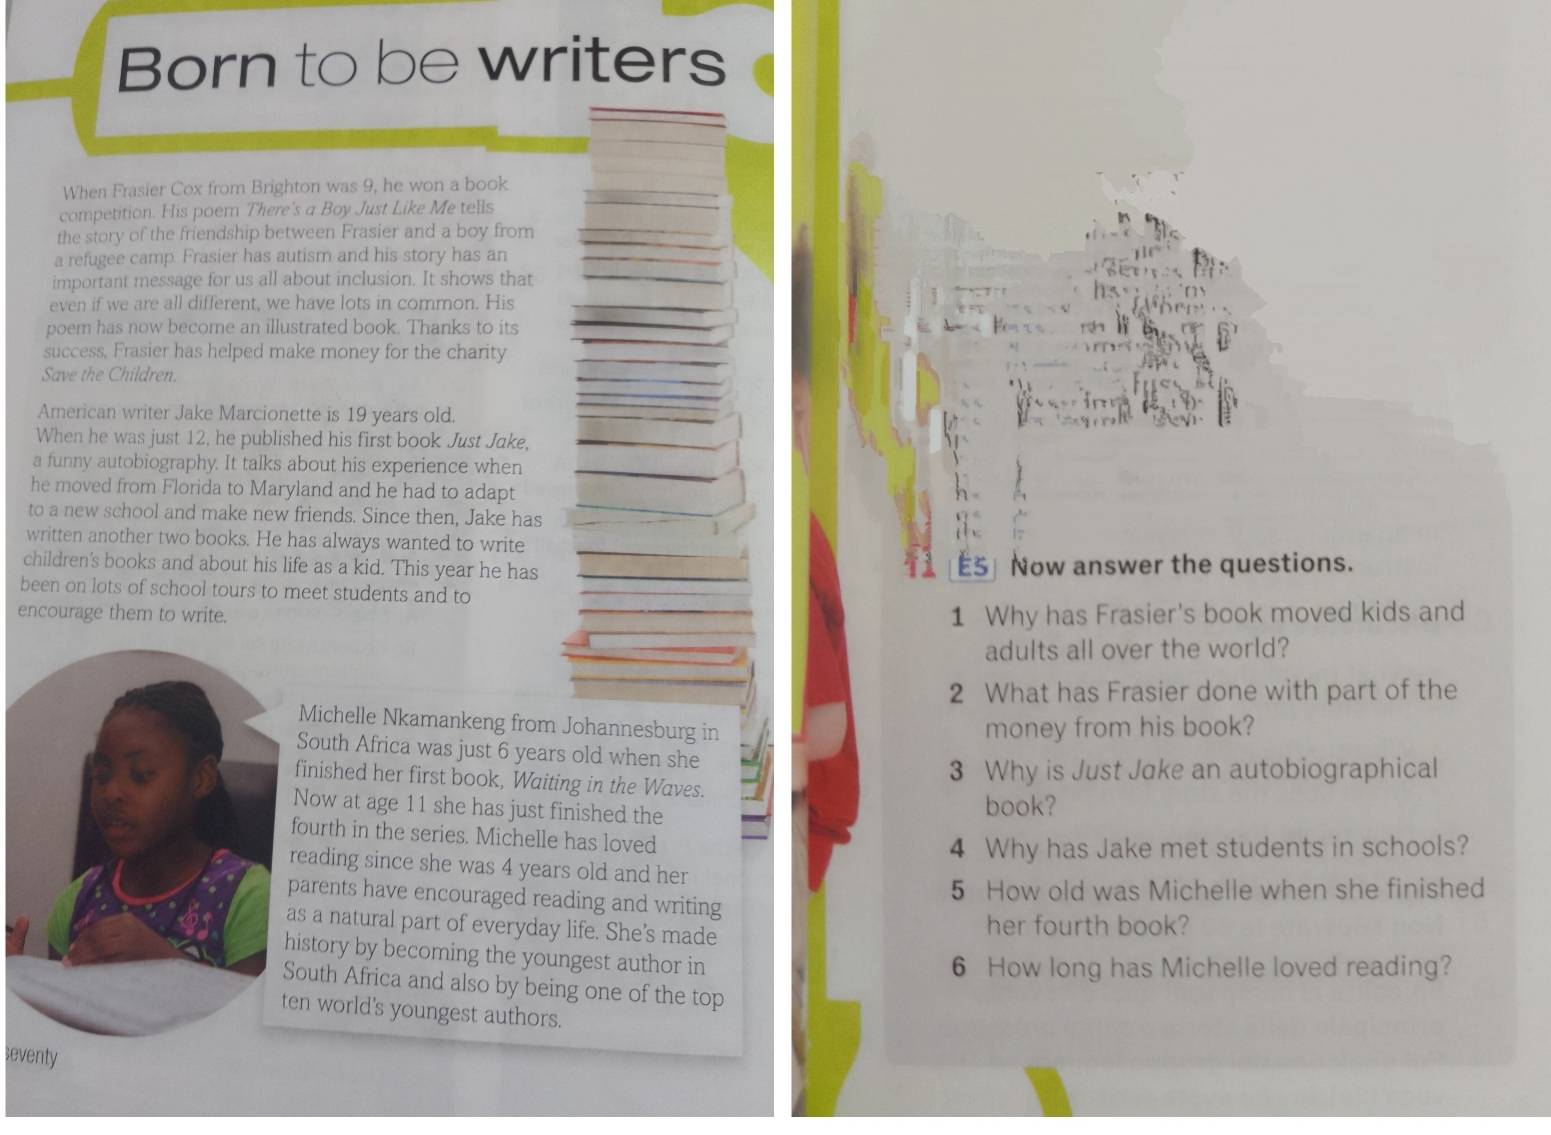 Born to be writers
When Frasier Cox from Brighton was 9, he won a book
competition. His poem There's a Boy Just Like Me tells
the story of the friendship between Frasier and a boy from
a refugee camp. Frasier has autism and his story has an
important message for us all about inclusion. It shows that
even if we are all different, we have lots in common. His
poem has now become an illustrated book. Thanks to its
success, Frasier has helped make money for the charity
Save the Children.
American writer Jake Marcionette is 19 years old.
When he was just 12, he published his first book Just Jake,
a funny autobiography. It talks about his experience when
he moved from Florida to Maryland and he had to adapt
to a new school and make new friends. Since then, Jake has
written another two books. He has always wanted to write
children's books and about his life as a kid. This year he has
been on lots of school tours to meet students and to
encourage them to write.
Michelle Nkamankeng from Johannesburg in
South Africa was just 6 years old when she
finished her first book, Waiting in the Waves.
Now at age 11 she has just finished the
fourth in the series. Michelle has loved
reading since she was 4 years old and her
parents have encouraged reading and writing
as a natural part of everyday life. She's made
history by becoming the youngest author in
South Africa and also by being one of the top
ten world's youngest authors.
seventy
11 E5 Now answer the questions.
1 Why has Frasier's book moved kids and
adults all over the world?
2 What has Frasier done with part of the
money from his book?
3 Why is Just Jake an autobiographical
book?
4 Why has Jake met students in schools?
5 How old was Michelle when she finished
her fourth book?
6 How long has Michelle loved reading?